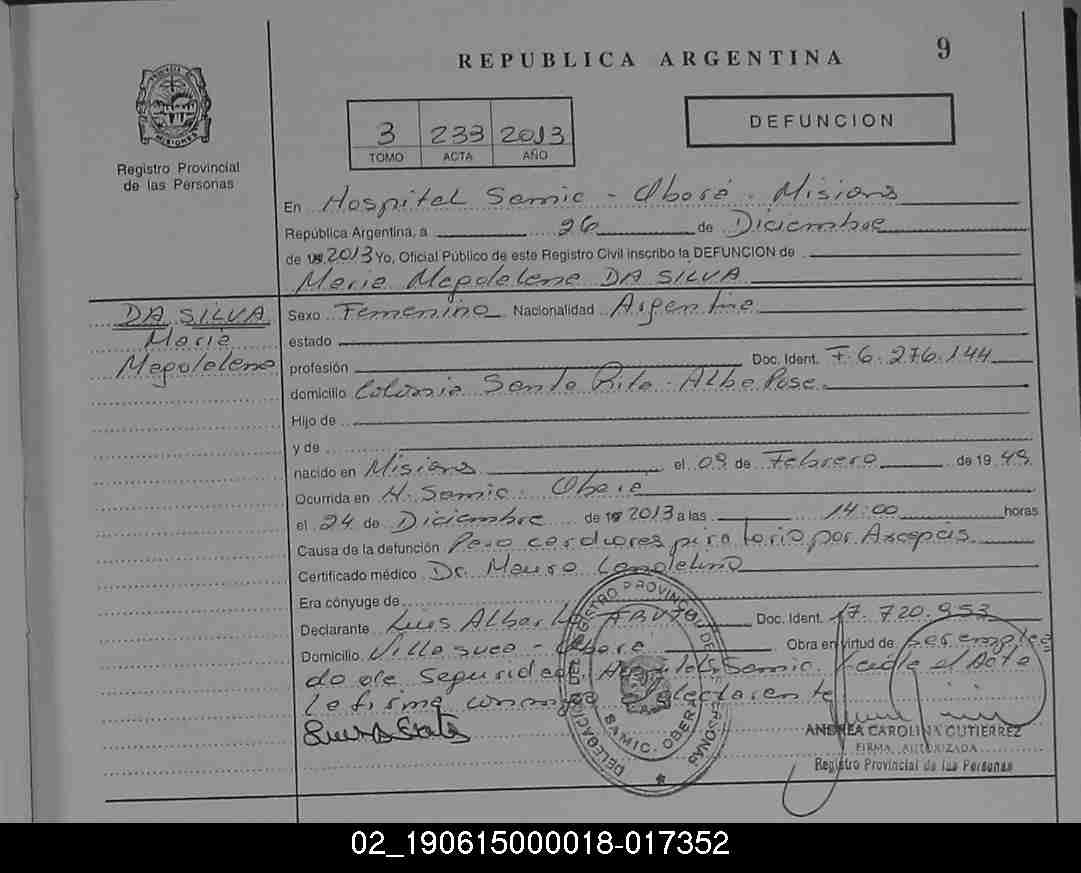 REPUBLICA ARGENTINA
9
PROVINCIA DE MISIONES
Registro Provincial
de las Personas
3 233 2013
TOMO ACTA AÑO
DEFUNCION
En Hospital Samic - Oberá - Misiones
República Argentina, a 26 de Diciembre
de 2013 Yo, Oficial Público de este Registro Civil inscribo la DEFUNCION de
Maria Magdalena DA SILVA
DA SILVA
Maria
Magdalena
Sexo Femenino Nacionalidad Argentina
estado
profesión Doc. Ident. F 6.276.144
domicilio Colonia Santa Rita - Alba Pose
Hijo de
y de
nacido en Misiones el 09 de Febrero de 1949
Ocurrida en H. Samic - Oberá
el 24 de Diciembre de 2013 a las 14:00 horas
Causa de la defunción Paro cardiorespiratorio por Axcepcis
Certificado médico Dr. Mauro
Era cónyuge de
Declarante Luis Alberto Doc. Ident. 17.720.953
Domicilio Villa - Oberá Obra en virtud de ser emplea
do de Seguridad Hospital Samic. Leida el Acta
la firma conmigo el declarante
DELEGACION REGISTRO PROVINCIAL DE LAS PERSONAS
SAMIC. OBERA
ANDREA CAROLINA GUTIERREZ
FIRMA AUTORIZADA
Registro Provincial de las Personas
02_190615000018-017352